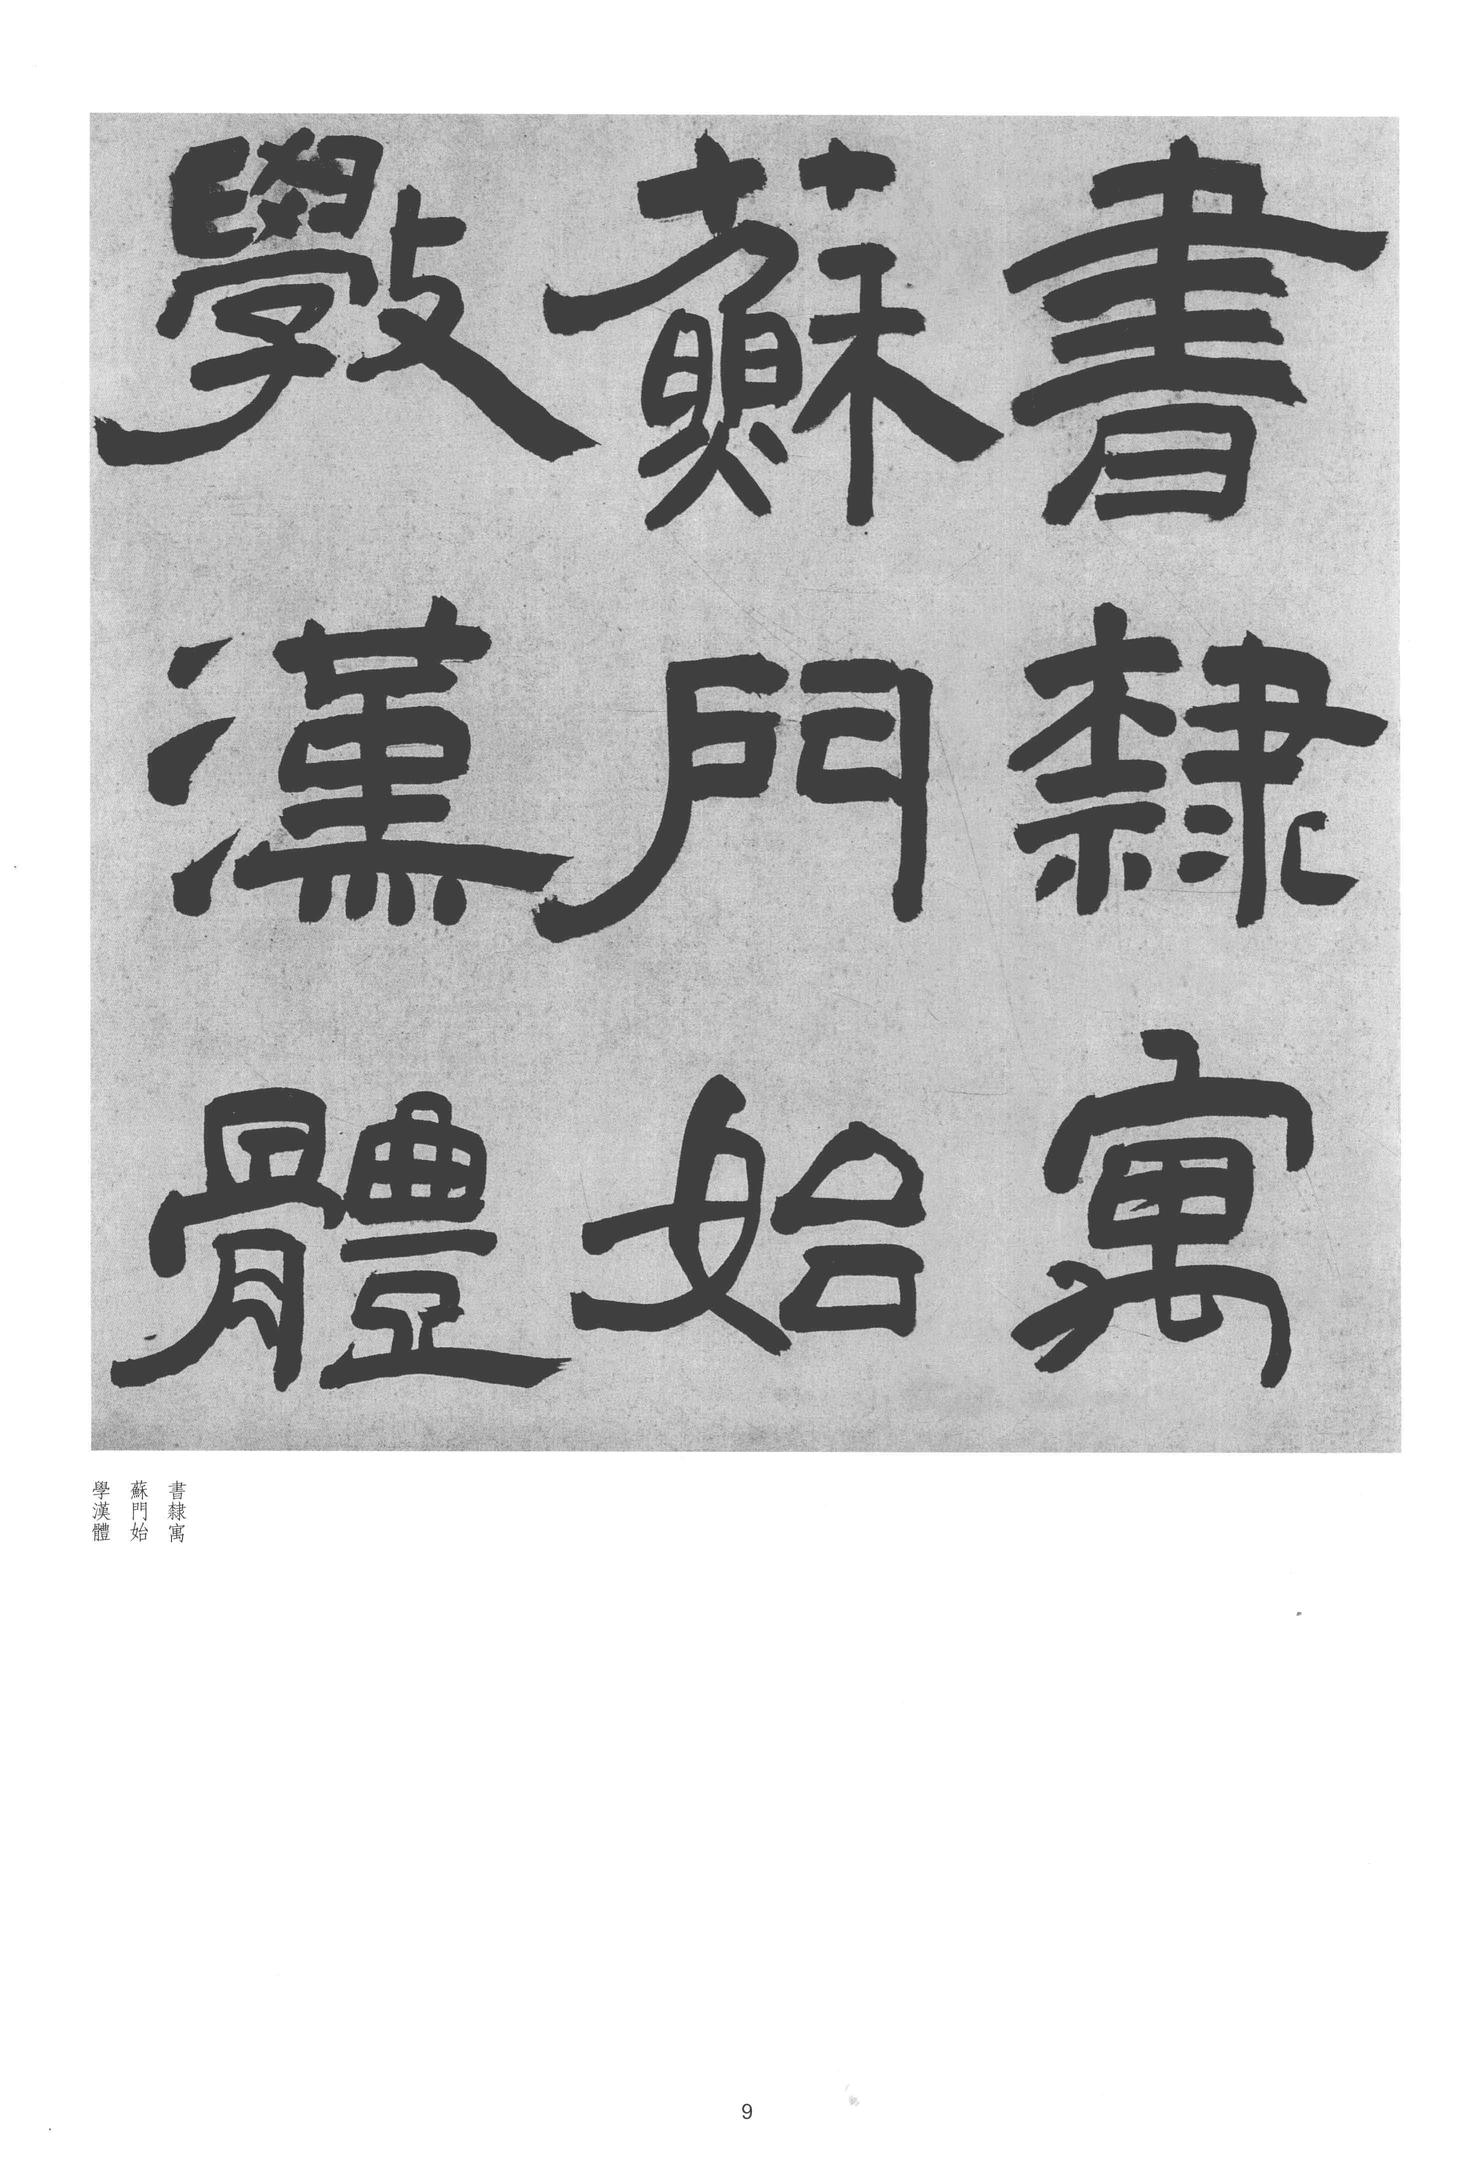 書隸寓
蘇門始
斆漢體
書隸寓
蘇門始
學漢體
9